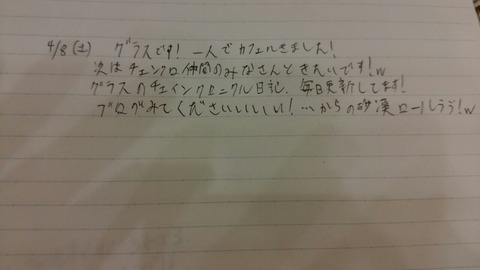 4/8(土) グラスです! 一人でカフェルきました!
次はチェンクロ仲間のみなさんときたいです!w
グラスのチェインクロニクル日記、毎日更新してます!
ブログみてくださいいいい!…からの砂漠ロールしろう!w